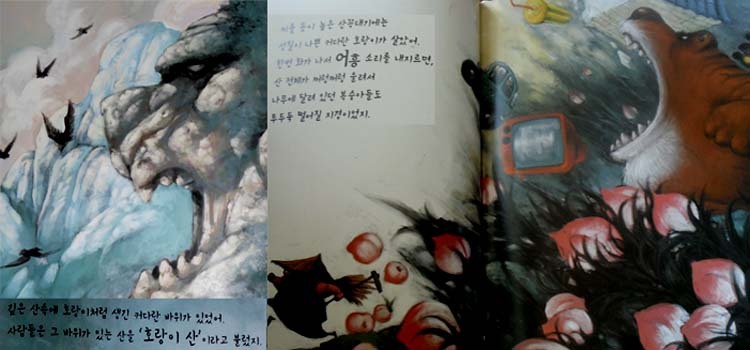 깊은 산속에 호랑이처럼 생긴 커다란 바위가 있었어.
사람들은 그 바위가 있는 산을 '호랑이 산'이라고 불렀지.
높은 산꼭대기에는
성질이 나쁜 커다란 호랑이가 살았어.
한번 화가 나서 어흥 소리를 내지르면,
산 전체가 쩌렁쩌렁 울려서
나무에 달려 있던 복숭아들도
투두둑 떨어질 지경이었지.